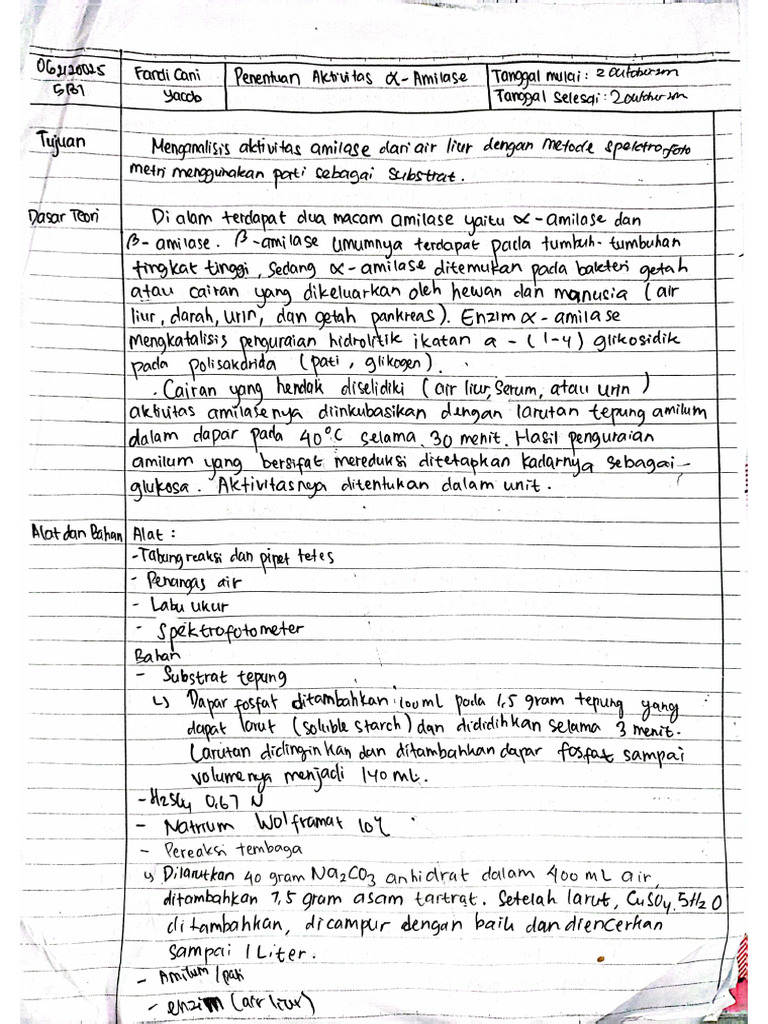 062120025
5B1
Fardi Cani
Yacob
Penentuan Aktivitas α-Amilase
Tanggal mulai: 2
Tanggal selesai: 2
Tujuan
Menganalisis aktivitas amilase dari air liur dengan metode spektrofoto
metri menggunakan pati sebagai substrat.
Dasar Teori
Di alam terdapat dua macam amilase yaitu α-amilase dan
β-amilase. β-amilase umumnya terdapat pada tumbuh-tumbuhan
tingkat tinggi, sedang α-amilase ditemukan pada bakteri getah
atau cairan yang dikeluarkan oleh hewan dan manusia (air
liur, darah, urin, dan getah pankreas). Enzim α-amilase
mengkatalisis penguraian hidrolitik ikatan a-(1-4) glikosidik
pada polisakarida (pati, glikogen).
Cairan yang hendak diselidiki (air liur, serum, atau urin)
aktivitas amilasenya diinkubasikan dengan larutan tepung amilum
dalam dapar pada 40°C selama 30 menit. Hasil penguraian
amilum yang bersifat mereduksi ditetapkan kadarnya sebagai-
glukosa. Aktivitasnya ditentukan dalam unit.
Alat dan Bahan
Alat :
- Tabung reaksi dan pipet tetes
- Penangas air
- Labu ukur
- Spektrofotometer
Bahan
- Substrat tepung
↳ Dapar fosfat ditambahkan 100 ml pada 1,5 gram tepung yang
dapat larut (soluble starch) dan dididihkan selama 3 menit.
Larutan didinginkan dan ditambahkan dapar fosfat sampai
volumenya menjadi 140 mL.
- H2SO4 0,67 N
- Natrium Wolframat 10%
- Pereaksi tembaga
↳ Dilarutkan 40 gram Na2CO3 anhidrat dalam 400 mL air,
ditambahkan 7,5 gram asam tartrat. Setelah larut, CuSO4.5H2O
ditambahkan, dicampur dengan baik dan diencerkan
sampai 1 Liter.
- Amilum / pati
- enzim (air liur)